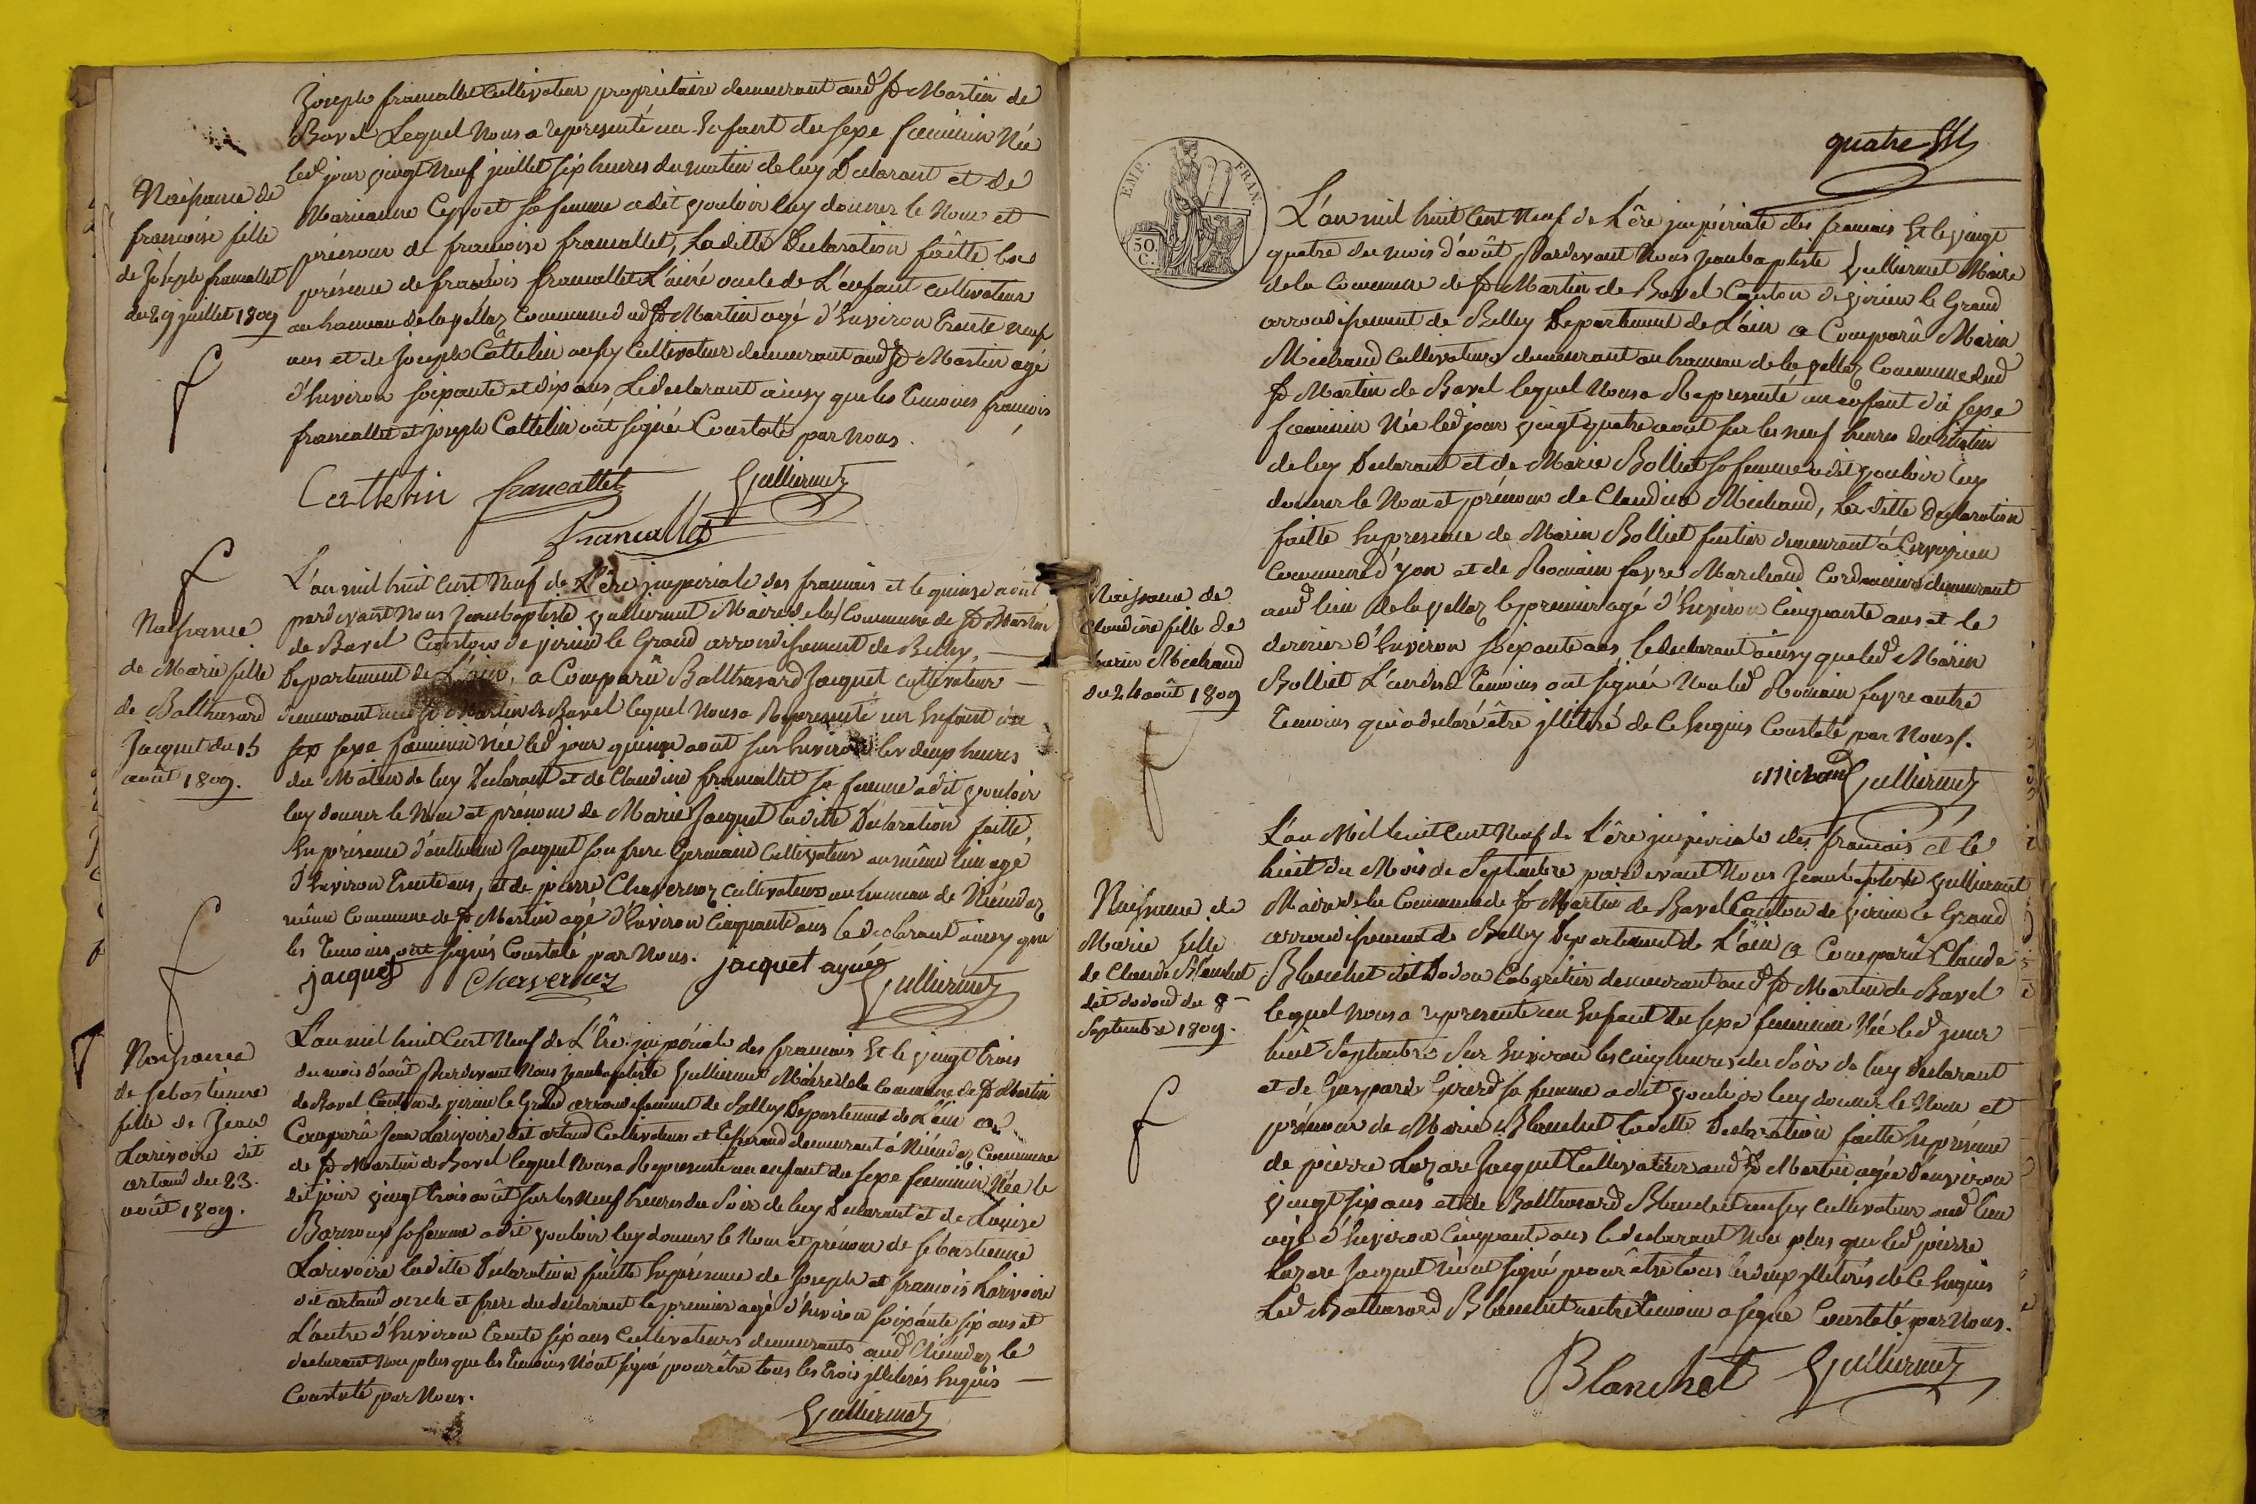 Joseph francallet Cultivateur propriétaire demeurant aud St Martin de
Bavel Lequel Nous a representé un Enfant du sexe fœminin Née
led jour vingt Neuf juillet six heures du matin de luy Declarant et de
Marianne sa femme a dit vouloir luy donner le Nom et
prénom de francoise francallet, Laditte Declaration faitte En
présence de francois francallet L'ainé oncle de L'enfant cultivateur
au hameau de la vellaz Commune dud St Martin agé d'Environ Trente neuf
ans et de Joseph Cattelin aussy Cultivateur demeurant aud St Martin agé
d'Environ soixante et dix ans, Le declarant ainsy que les Temoins francois
francallet et Joseph Cattelin ont signé Constaté par Nous.
Naissance de
francoise fille
de Joseph francallet
du 29 juillet 1809
Cattelin francallet Gulliermet
francallet
L'an mil huit Cent Neuf de L'êre jmperiale des francais et le quinze août
pardevant Nous Jeanbaptiste Gulliermet Maire de la Commune de St Martin
de Bavel Canton de virieu le Grand arrondissement de Belley,
Departement de L'ain, a Comparû Balthasard Jacquet cultivateur
demeurant aud St Martin de Bavel lequel Nous a Representé un Enfant du
sex sexe fœminin Née led jour quinze aout sur Environ les deux heures
du Matin de luy Declarant et de Claudine francallet sa femme a dit vouloir
luy donner le Nom et prénom de Marie Jacquet laditte Declaration faitte
En présence d'antheme Jacquet son frere Germain Cultivateur au même lieu agé
d'Environ Trente ans, et de pierre Chavernoz cultivateur au hameau de Niéudaz
même Commune de St Martin agé d'Environ Cinquante ans le declarant ainsy que
les Temoins ont signés Constaté par Nous.
Naissance
de Marie fille
de Balthasard
Jacquet du 15
août 1809.
jacquet Chavernoz jacquet aynée Gulliermet
L'an mil huit Cent Neuf de L'êre jmpériale des francais Et le vingt Trois
du mois d'août Pardevant Nous Jeanbaptiste Gulliermet Maire de la Commune de St Martin
de Bavel Canton de virieu le Grand arrondissement de Belley Departement de L'ain a
Comparû Jean Larivoire dit artaud Cultivateur et Tisserand demeurant à Niéudaz Commune
de St Martin de Bavel lequel Nous a Representé un enfant du sexe fœminin Née le
dit jour vingt Trois août sur les Neuf heures du Soir de luy Declarant et de Louise
sa femme a dit vouloir luy donner le Nom et prénom de sébastienne
Larivoire laditte Déclaration faitte En présence de Joseph et francois Larivoire
dit artaud oncle et frere du declarant le premier agé d'Environ soixante six ans et
L'autre d'Environ Trente six ans Cultivateurs demeurants aud Niéudaz le
declarant Non plus que les Temoins N'ont signé pour être tous les Trois jlliterés Enquis
Constaté par Nous.
Naissance
de sebastienne
fille de Jean
Larivoire dit
artaud du 23.
août 1809.
Gulliermet
quatre
EMP. FRAN.
50 C.
L'an mil huit Cent Neuf de L'êre jmpériale des francais Et le vingt
quatre du mois d'août Pardevant Nous Jeanbaptiste Gulliermet Maire
de la Commune de St Martin de Bavel Canton de virieu le Grand
arrondissement de Belley Departement de L'ain a Comparû Marin
Michaud Cultivateur demeurant au hameau de la vellaz Commune dud
St Martin de Bavel lequel Nous a Representé un enfant du sexe
fœminin Née led jour vingt quatre aout sur les neuf heures du Matin
de luy Declarant et de Marie Bolliet sa femme a dit vouloir luy
donner le Nom et prénom de Claudine Michaud, Laditte Declaration
faitte En presence de Marin Bolliet demeurant à
Commune d'yon et de Romain favre Marchand Cordonnier demeurant
aud lieu de la vellaz le premier agé d'Environ Cinquante ans et le
dernier d'Environ soixante ans, le declarant ainsy que led Marin
Bolliet L'un des Temoins ont signé Non led Romain favre autre
Temoins qui a declaré être jlliteré de ce Enquis Constaté par Nous.
Naissance de
Claudine fille de
marin Michaud
du 24 août 1809
michaud Gulliermet
L'an Mil huit Cent Neuf de L'êre jmperiale des francais et le
huit du Mois de Septembre pardevant Nous Jeanbaptiste Gulliermet
Maire de la Commune de St Martin de Bavel Canton de virieu le Grand
arrondissement de Belley Departement de L'ain a Comparû Claude
Blanchet dit Dodon Cabaretier demeurant aud St Martin de Bavel
lequel Nous a representé un Enfant du sexe feminin Née led jour
huit Septembre Sur Environ les cinq heures du Soir de luy declarant
et de Gasparde Girerd sa femme a dit vouloir luy donner le Nom et
prénom de Marie Blanchet laditte Declaration faitte En présence
de pierre Lazare Jacquet Cultivateur aud St Martin agée d'environ
vingt six ans et de Balthasard Blanchet aussy cultivateur aud lieu
agé d'Environ Cinquante ans le declarant Non plus que led pierre
Lazare Jacquet N'ont signé pour être tous les deux jlliterés de ce Enquis
Led Balthasard Blanchet autre Temoin a signé Constaté par Nous.
Naissance de
Marie fille
de Claude Blanchet
dit dodon du 8
Septembre 1809.
Blanchet Gulliermet